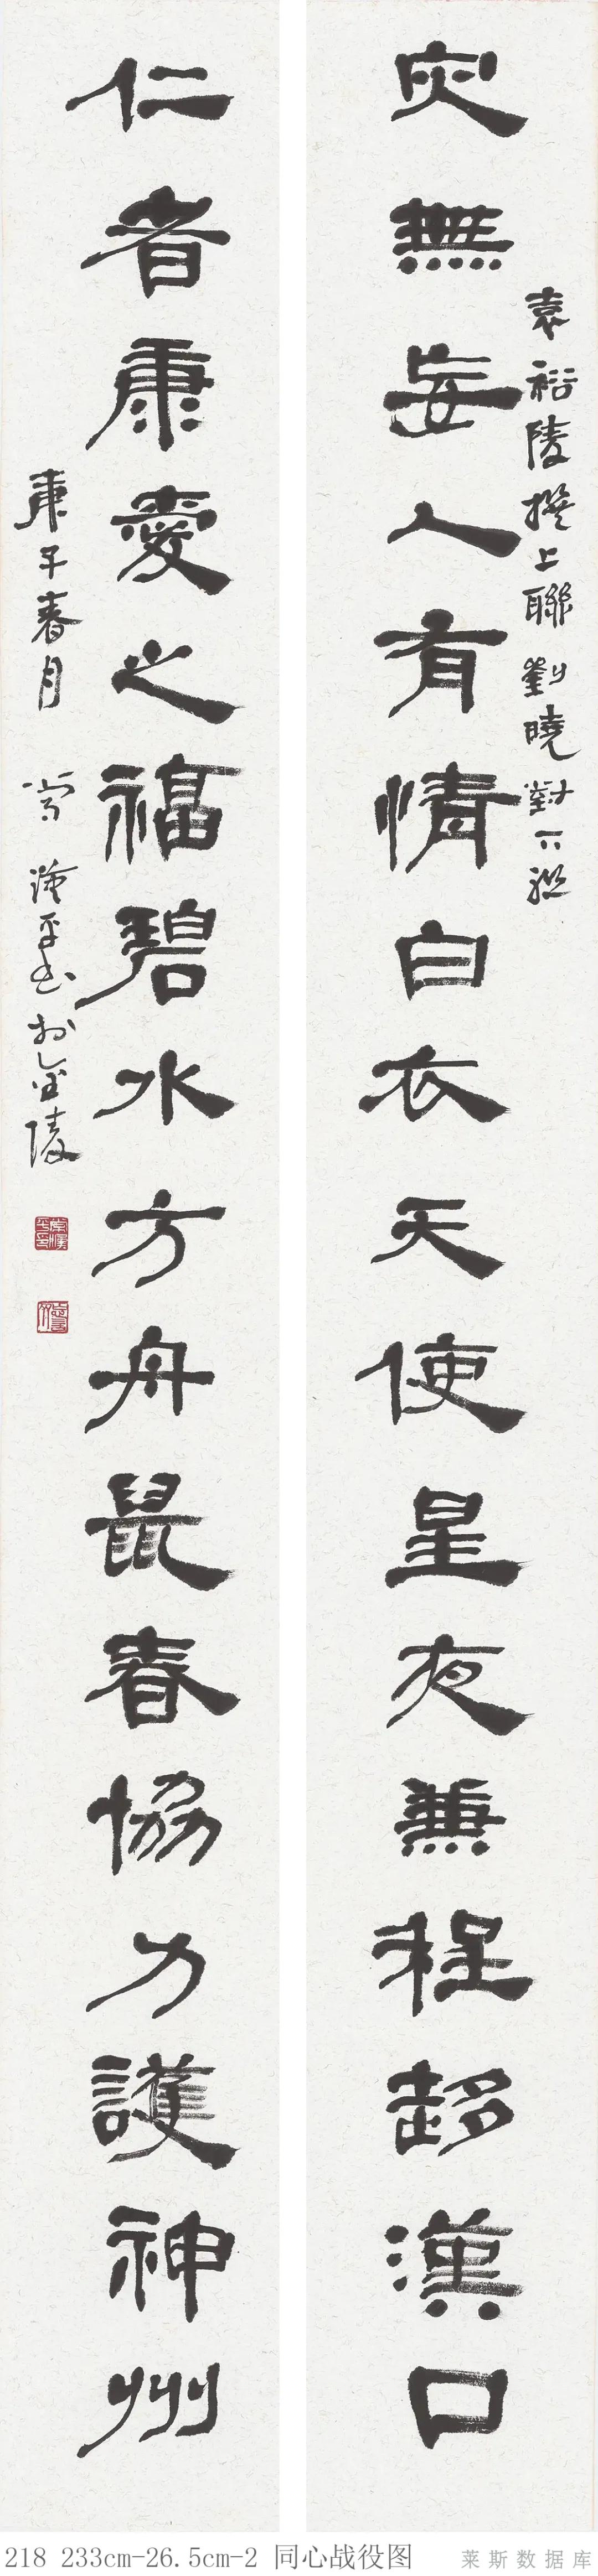 灾無妄人有情白衣天使星夜兼程趍漢口
袁裕陵撰上聯劉曉對下聯
仁者康愛之福碧水方舟鼠春協力護神州
庚子春月 常漢平书於金陵
218 233cm-26.5cm-2 同心战役图
莱斯数据库